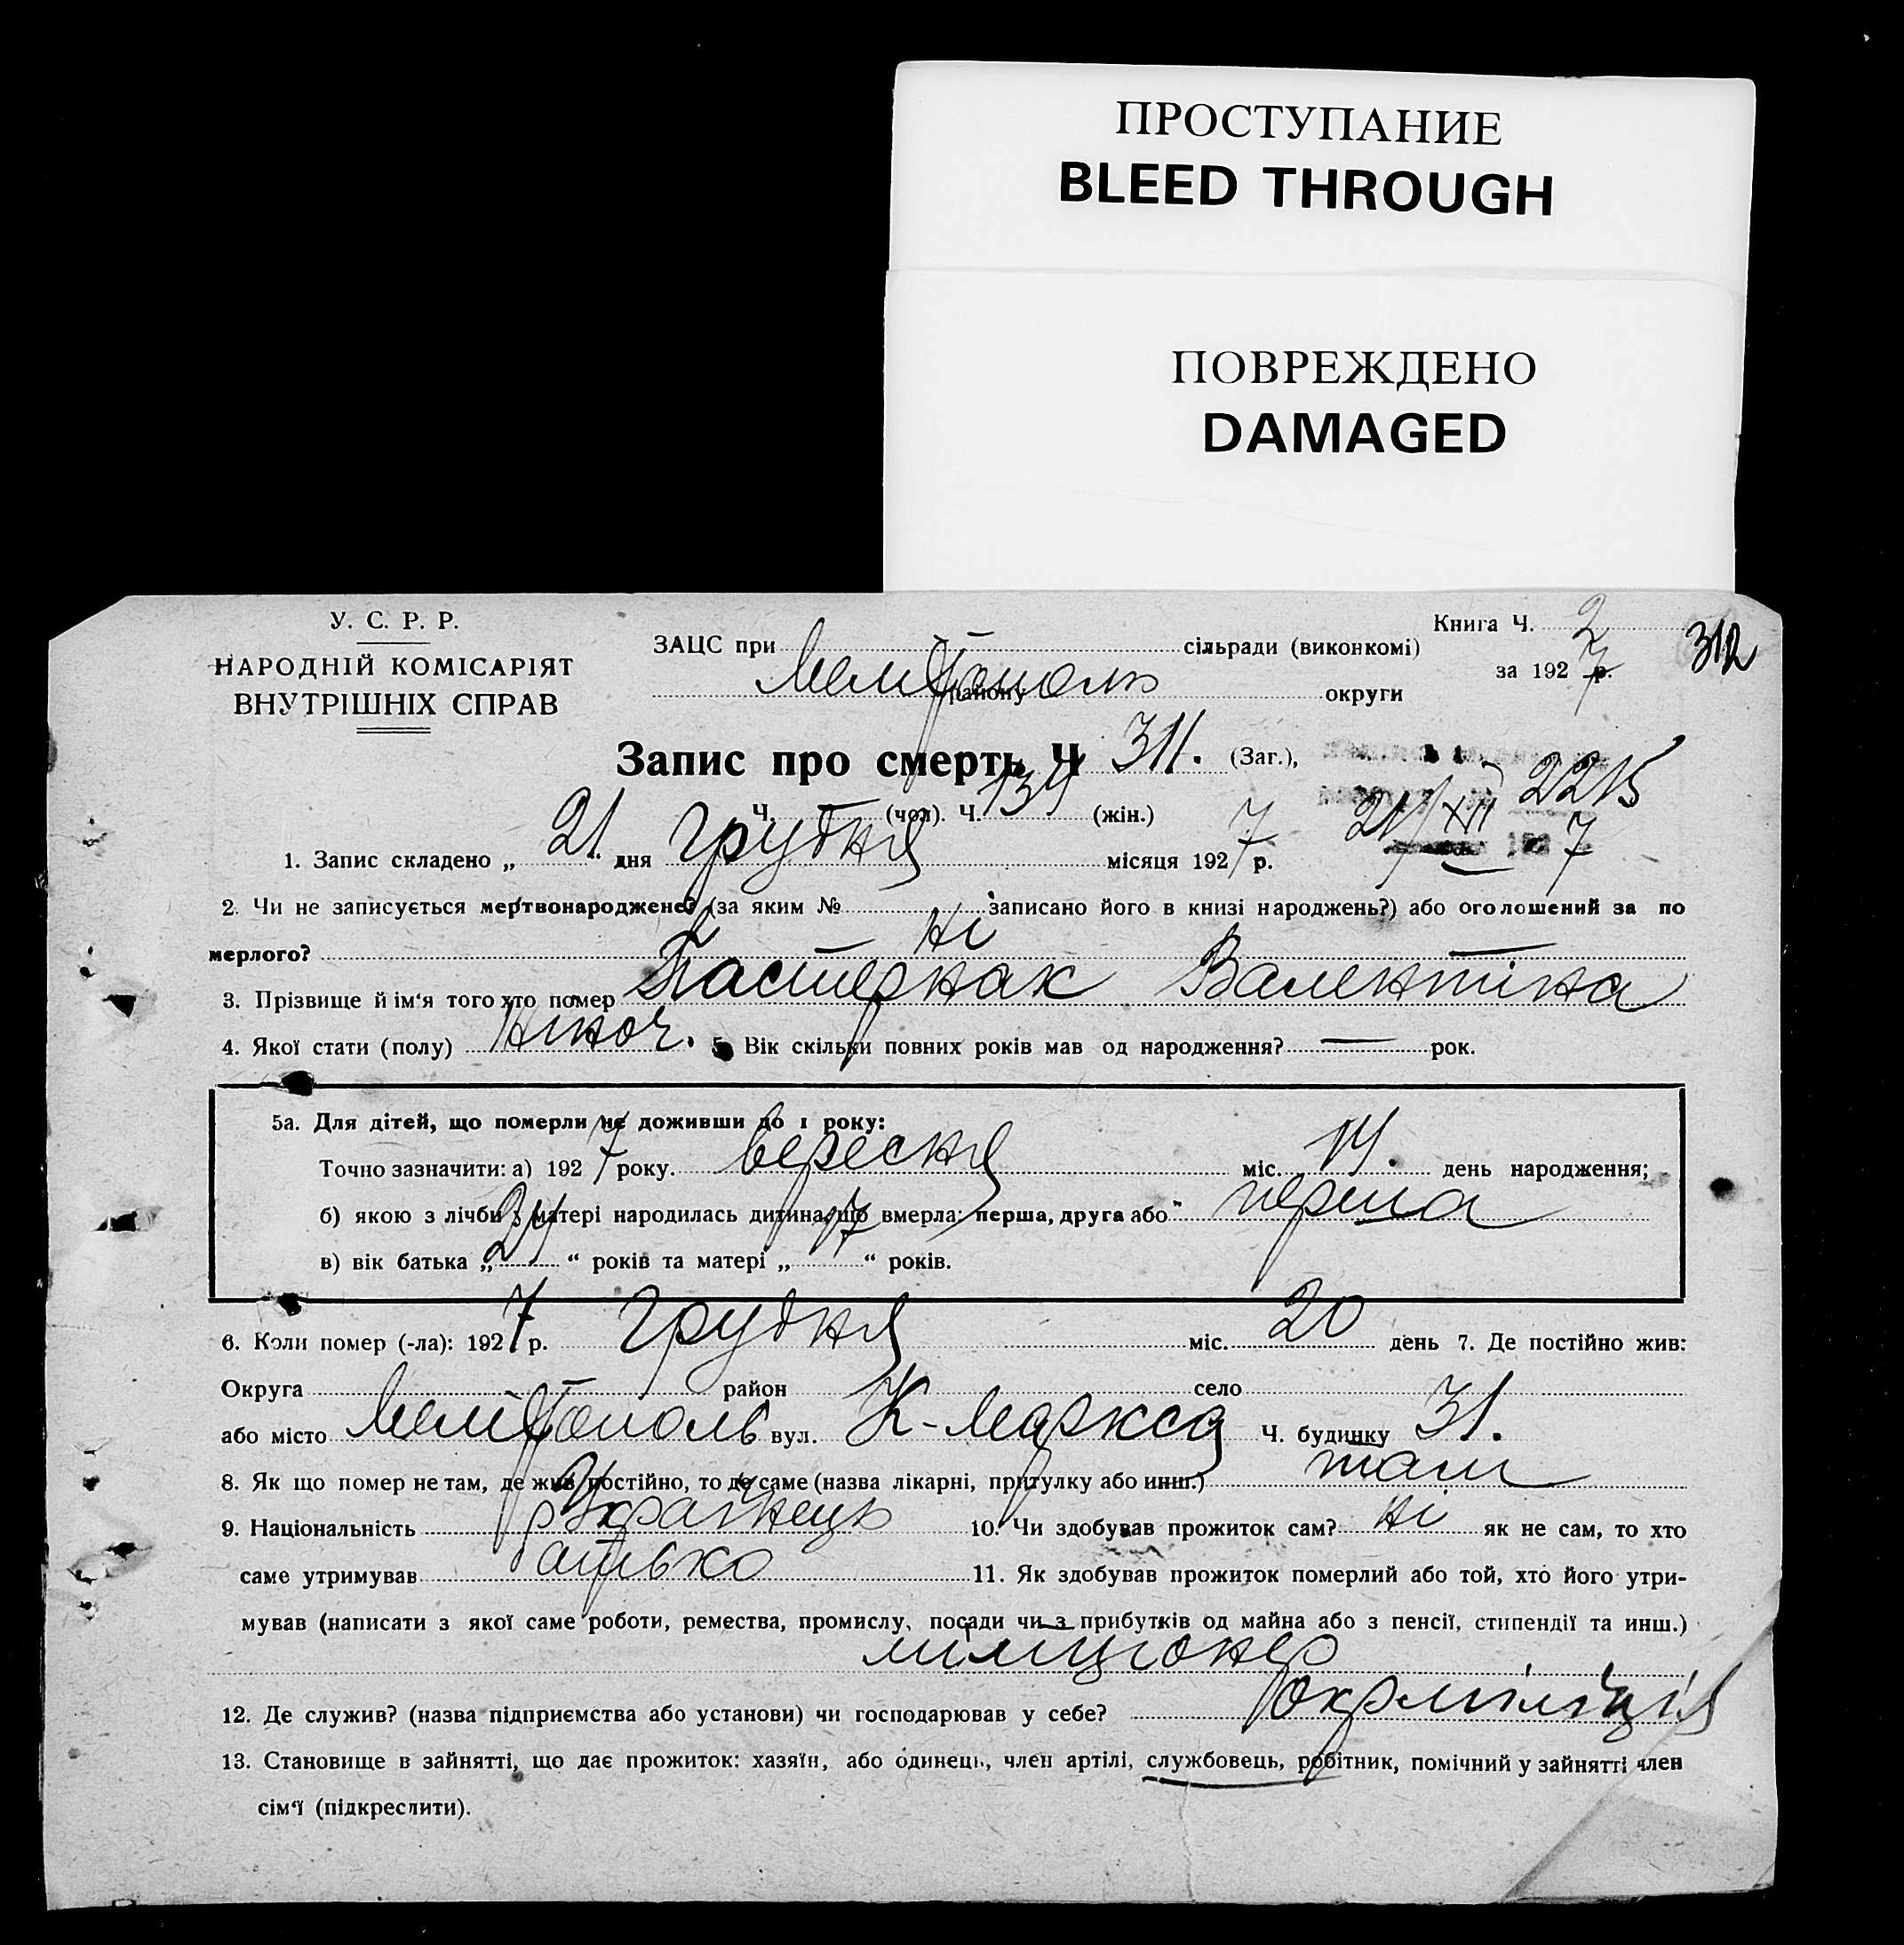 ПРОСТУПАНИЕ
BLEED THROUGH
ПОВРЕЖДЕНО
DAMAGED
У. С. Р. Р.
НАРОДНІЙ КОМІСАРІЯТ
ВНУТРІШНІХ СПРАВ
Книга Ч. 2
312
за 1927 р.
ЗАЦС при сільради (виконкомі)
Мелітополь району округи
Запис про смерть Ч 311. (Заг.),
Ч. (чол). Ч. 134 (жін.)
2215
21/XII 7
1. Запис складено „ 21 дня грудня місяця 1927 р.
2. Чи не записується мертвонароджене? (за яким № записано його в книзі народжень?) або оголошений за по
мерлого? ні —
3. Прізвище й ім'я того хто помер Пастернак Валентіна
4. Якої стати (полу) жіноч. 5. Вік скільки повних років мав од народження? — рок.
5а. Для дітей, що померли не доживши до 1 року:
Точно зазначити: а) 1927 року. вересня міс. 14. день народження;
б) якою з лічби у матері народилась дитина, що вмерла: перша, друга або" перша
в) вік батька „ 24 “ років та матері „ “ років.
6. Коли помер (-ла): 1927 р. грудня міс. 20 день 7. Де постійно жив:
Округа район село
або місто Мелітополь вул. К-Маркса Ч. будинку 31.
8. Як що помер не там, де жив постійно, то де саме (назва лікарні, притулку або инш.) там
9. Національність Українець 10. Чи здобував прожиток сам? ні як не сам, то хто
саме утримував батько 11. Як здобував прожиток померлий або той, хто його утри-
мував (написати з якої саме роботи, ремества, промислу, посади чи з прибутків од майна або з пенсії, стипендії та инш.)
міліціонер
12. Де служив? (назва підприємства або установи) чи господарював у себе? Окрміліція
13. Становище в зайнятті, що дає прожиток: хазяїн, або одинець, член артілі, службовець, робітник, помічний у зайнятті член
сім'ї (підкреслити).